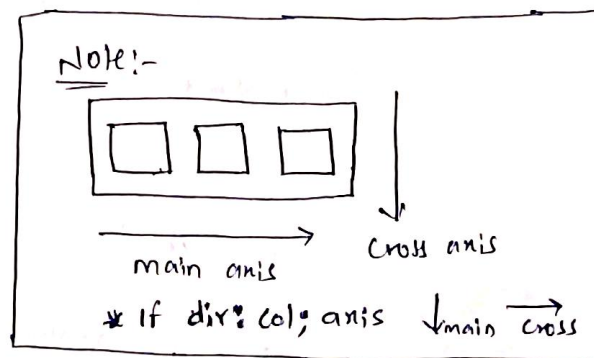 Note:-
main axis
cross axis
* If dir: col; axis ↓main → cross